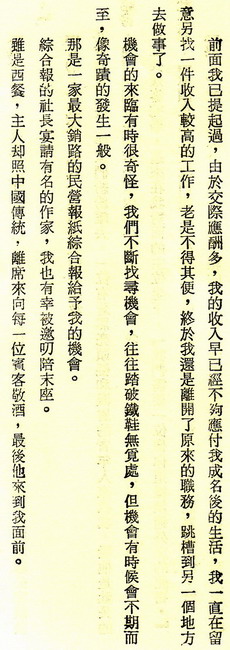 前面我已提起過，由於交際應酬多，我的收入早已經不夠應付我成名後的生活，我一直在留
意另找一件收入較高的工作，老是不得其便，終於我還是離開了原來的職務，跳槽到另一個地方
去做事了。
機會的來臨有時很奇怪，我們不斷找尋機會，往往踏破鐵鞋無覓處，但機會有時候會不期而
至，像奇蹟的發生一般。
那是一家最大銷路的民營報紙綜合報給予我的機會。
綜合報的社長宴請有名的作家，我也有幸被邀叨陪末座。
雖是西餐，主人却照中國傳統，離席來向每一位賓客敬酒，最後他來到我面前。